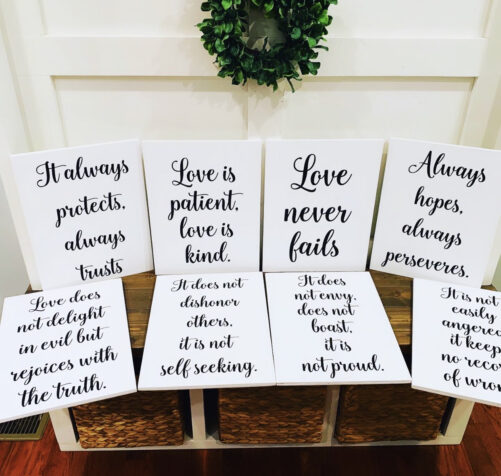 It always
protects,
always
trusts
Love is
patient,
love is
kind.
Love
never
fails
Always
hopes,
always
perseveres.
Love does
not delight
in evil but
rejoices with
the truth.
It does not
dishonor
others.
it is not
self seeking.
It does
not envy.
does not
boast.
it is
not proud.
It is not
easily
it
no
of